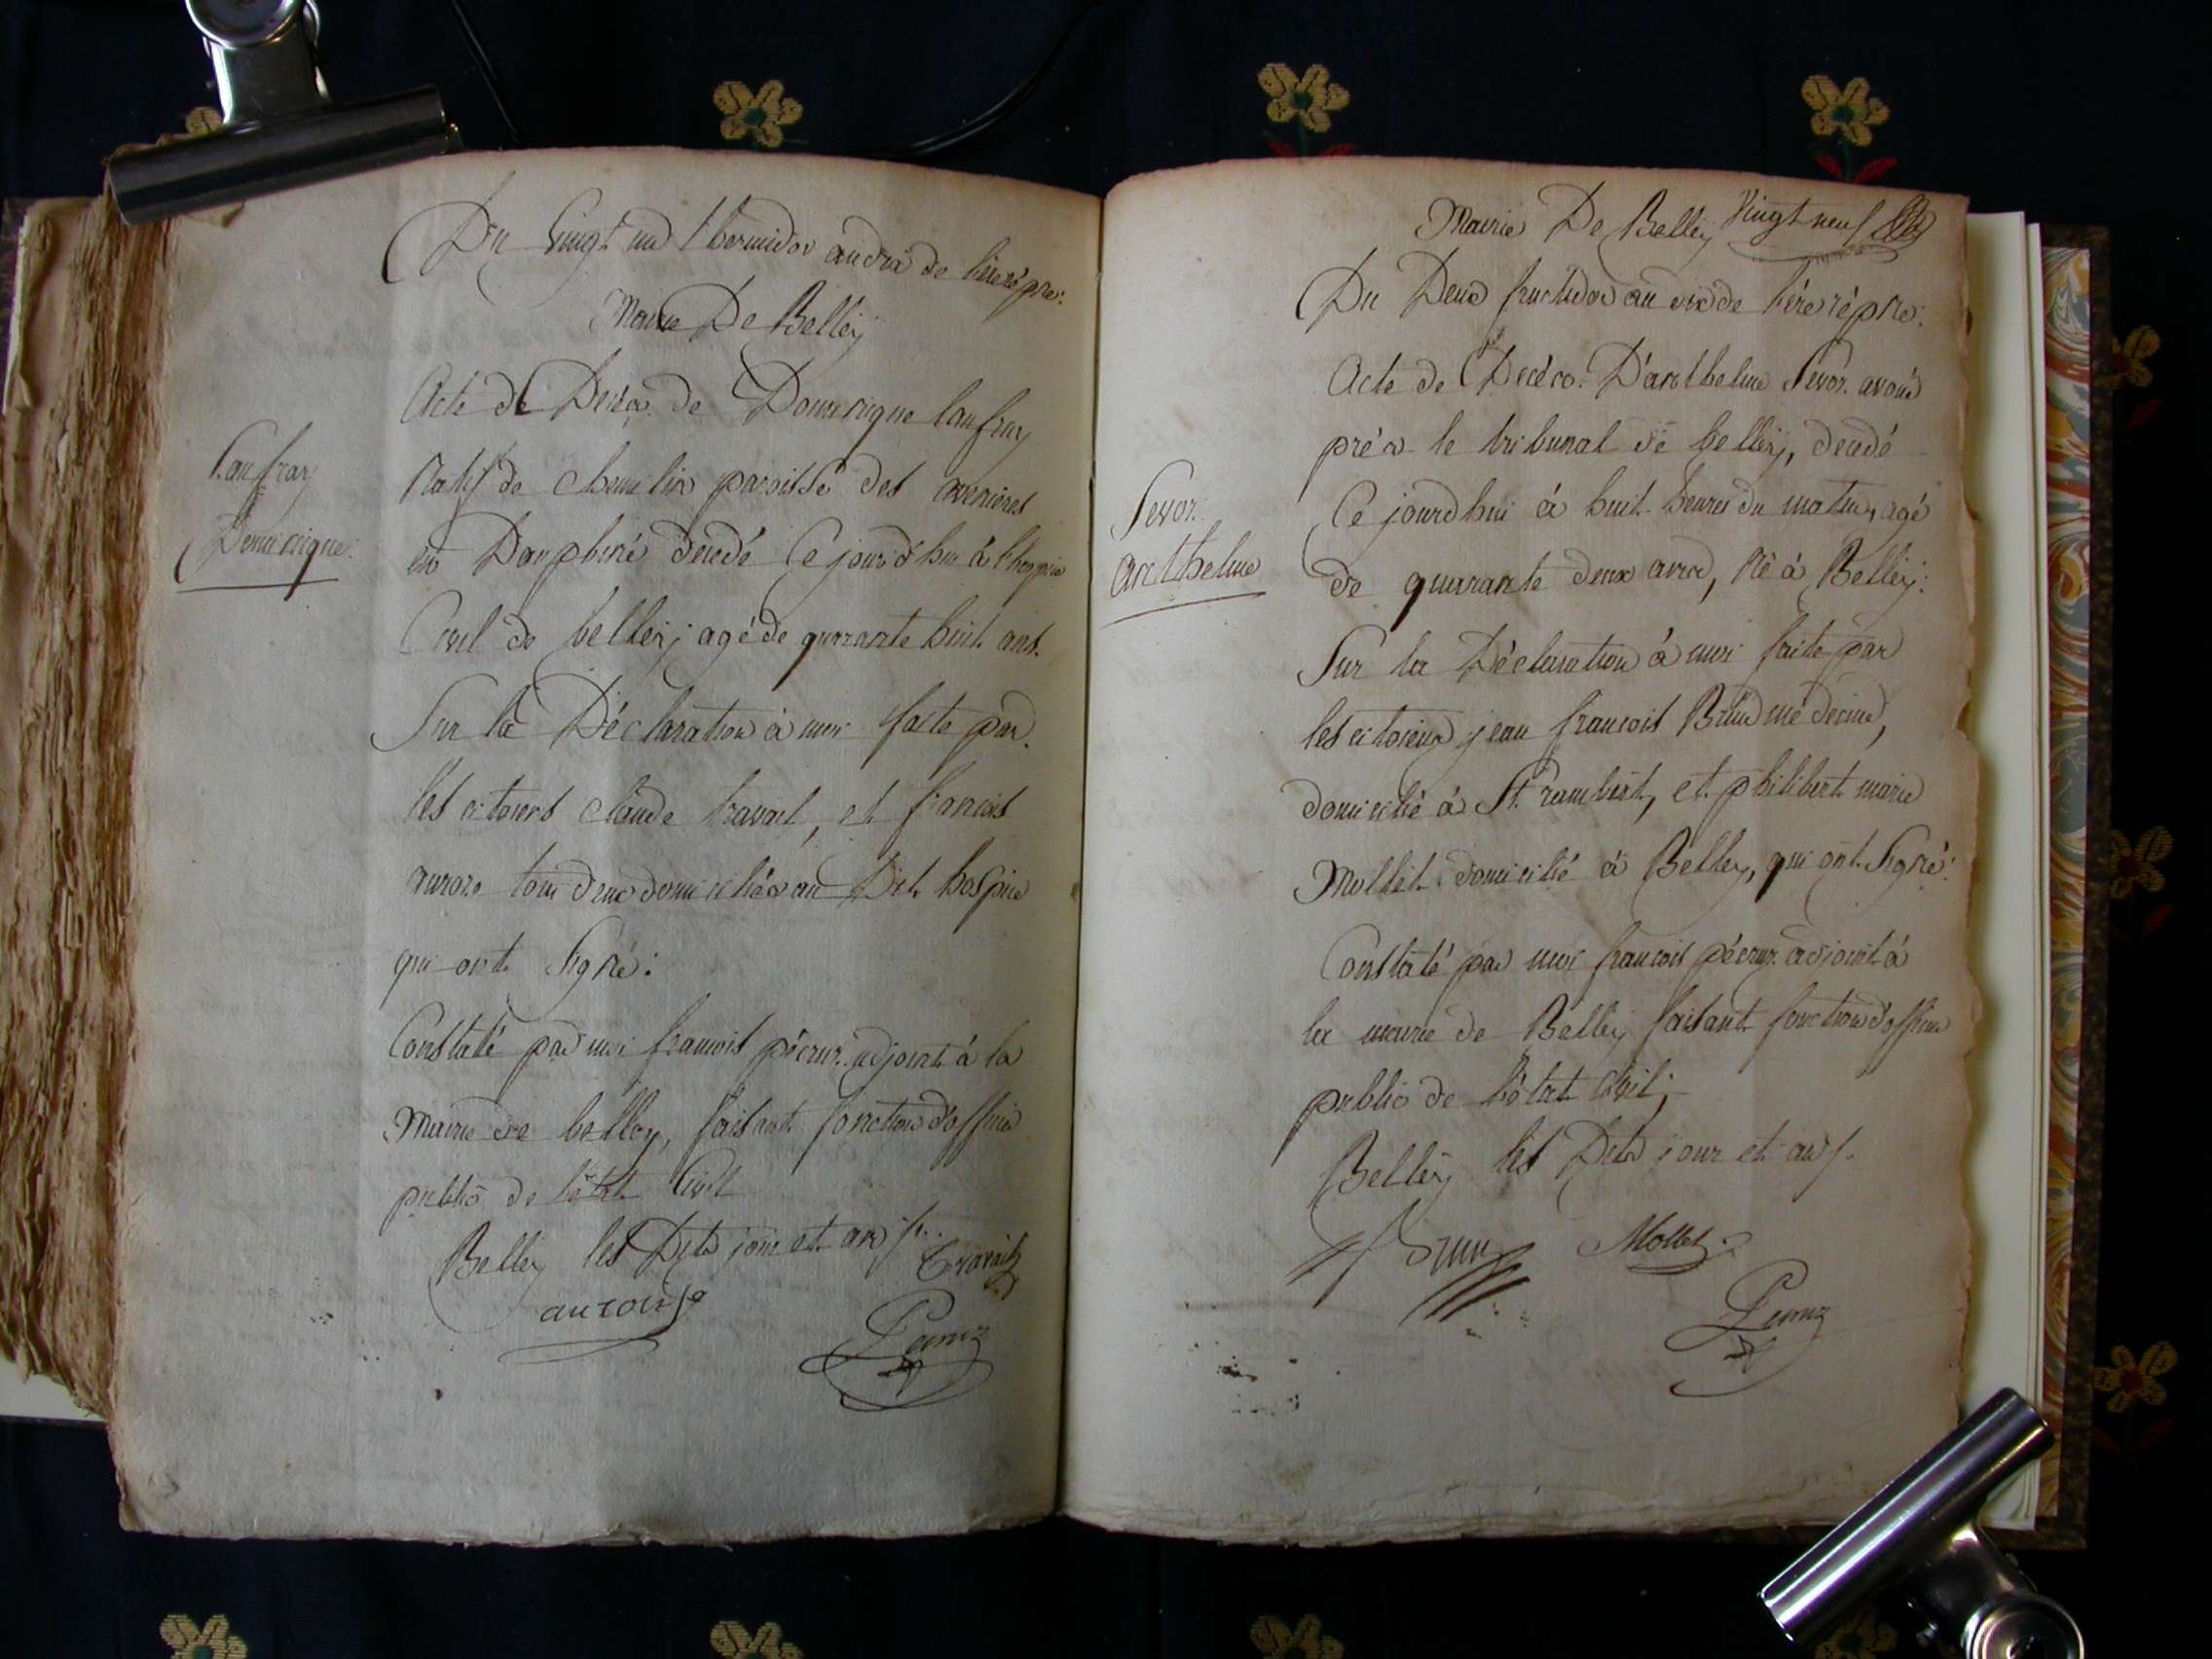 Du Vingt un thermidor an dix de l'ère répne:
Mairie De Belley
Acte de Décès de Dominique Lanfray
Natif de chemilin paroisse des avenieres
en Dauphiné décédé Ce jourd'hui à l'hospice
Civil de belley; agé de quarante huit ans.
Sur la Déclaration à moi faite par
les citoiens claude travail, et francois
aurore tous deux domiciliés au Dit hospice
qui ont Signé:
Constaté par moi francois pécruz adjoint à la
Mairie de belley, faisant fonction d'officier
public de l'état Civil
Belley les Dits jour et an
Travail
aurore
Pecruz
Lanfray
Dominique
Mairie De Belley Vingt neuf
Du Deux fructidor an dix de l'ère répne:
Acte de Décès D'anthelme Sevoz avoué
près le tribunal de belley, décédé
Ce jourdhui à huit heures du matin, agé
de quarante deux ans, Né à Belley:
Sur la Déclaration à moi faite par
les citoiens jean francois Brun médecin,
domicilié à St. rambert, et philibert marie
Mollet domicilié à Belley, qui ont Signé:
Constaté par moi francois pécruz adjoint à
la mairie de Belley faisant fonction d'officier
public de l'état Civil;
Belley les Dits jour et an
Brun Mollet
Pecruz
Sevoz
anthelme